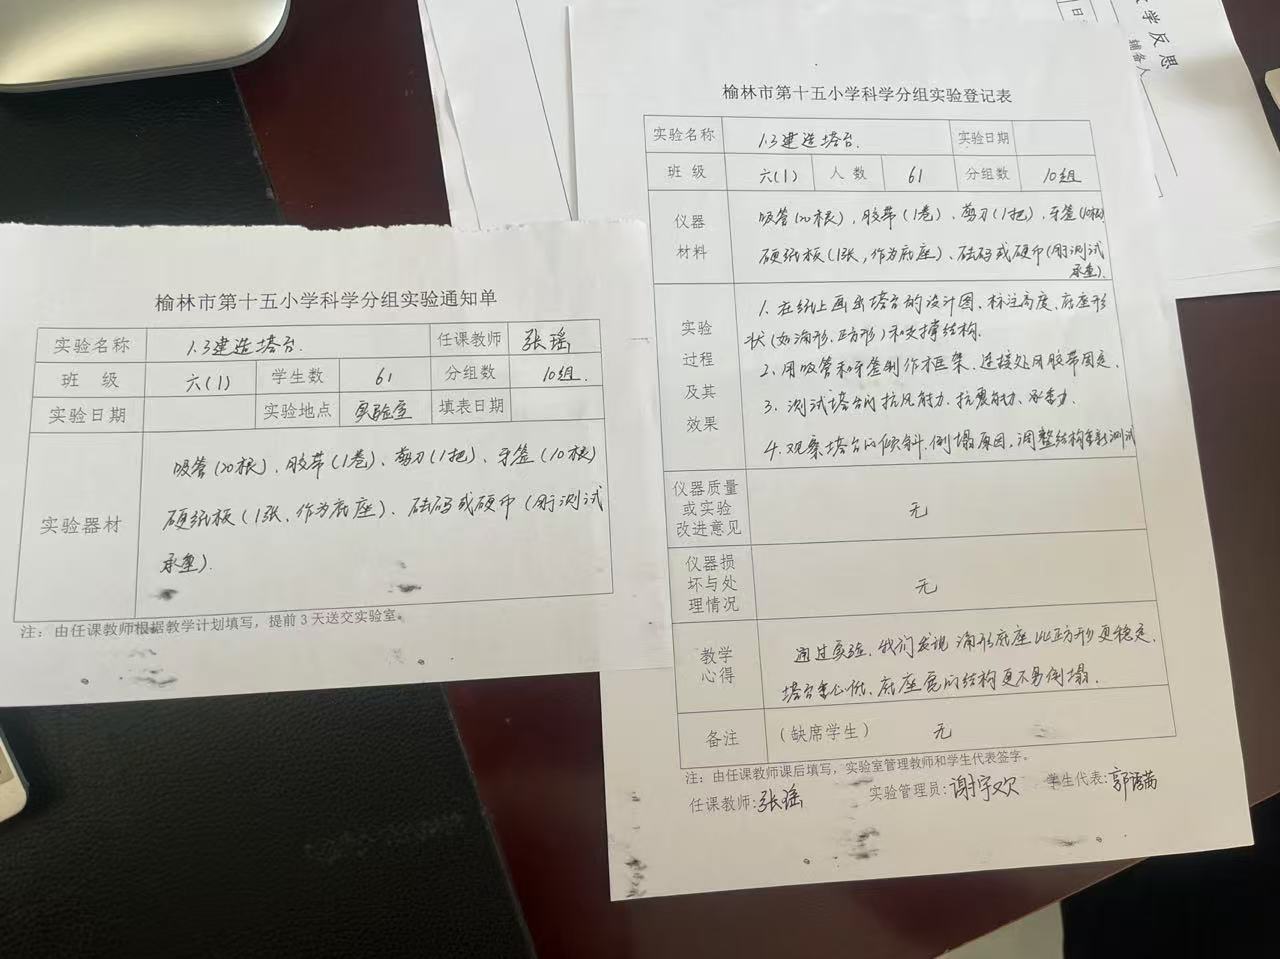 榆林市第十五小学科学分组实验通知单
实验名称 1.3建造塔台. 任课教师 张瑶
班 级 六(1) 学生数 61 分组数 10组.
实验日期 实验地点 实验室 填表日期
实验器材
吸管(20根)、胶带(1卷)、剪刀(1把)、牙签(10根)
硬纸板(1张,作为底座)、砝码或硬币(用于测试
承重).
注: 由任课教师根据教学计划填写,提前3天送交实验室。
榆林市第十五小学科学分组实验登记表
实验名称 1.3建造塔台. 实验日期
班 级 六(1) 人 数 61 分组数 10组
仪器
材料
吸管(20根),胶带(1卷)、剪刀(1把),牙签(10根)
硬纸板(1张,作为底座)、砝码或硬币(用于测试
承重).
实验
过程
及其
效果
1. 在纸上画出塔台的设计图、标注高度、底座形
状(如圆形、正方形)和支撑结构.
2. 用吸管和牙签制作框架、连接处用胶带固定.
3. 测试塔台的抗风能力、抗震能力、承重力.
4. 观察塔台的倾斜、倒塌原因,调整结构重新测试
仪器质量
或实验
改进意见
无
仪器损
坏与处
理情况
无
教学
心得
通过实验,我们发现 圆形底座比正方形更稳定.
塔台重心低、底座宽的结构更不易倒塌.
备注 (缺席学生) 无
注:由任课教师课后填写,实验室管理教师和学生代表签字。
任课教师:张瑶 实验管理员:谢宇欢 学生代表:郭
学反思
辅备人
日